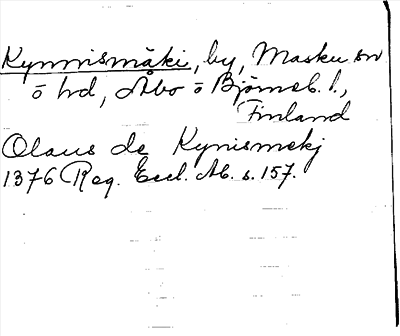 Kynnismäki, by, Masku sn
o hd, Åbo o Björneb. l.,
Finland
Olaus de Kynismekj
1376 Reg. Eccl. Ab. s. 157.